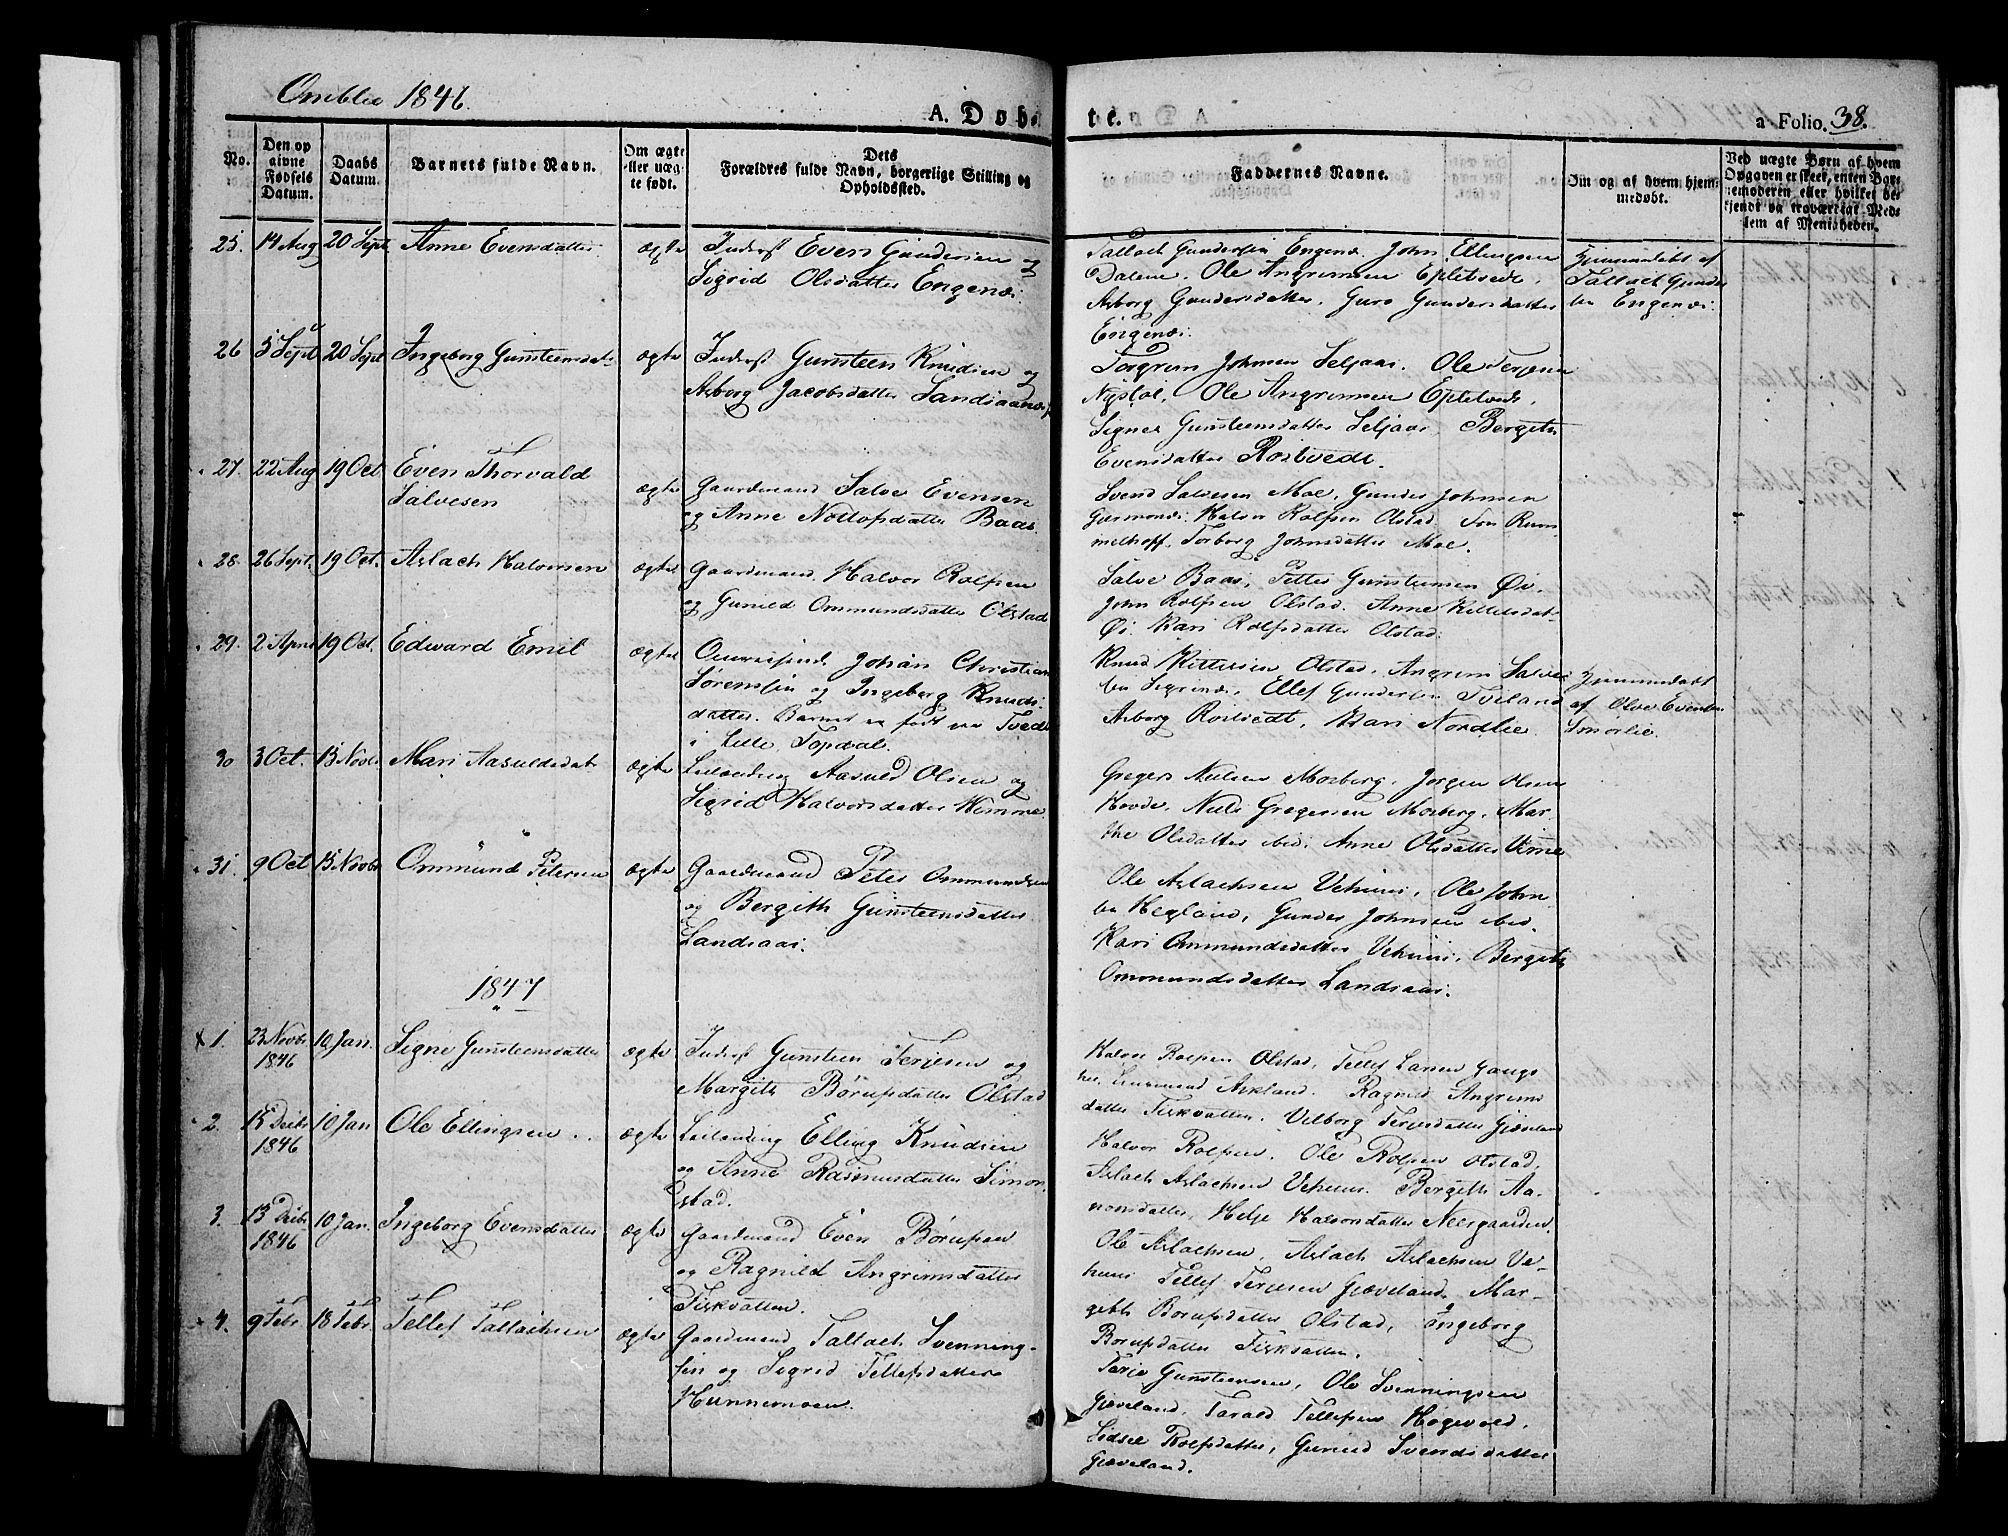 Omblie 1846
A. Døbte.
a Folio 38.
No.
Den opgivne Fødsels Datum.
Daabs Datum.
Barnets fulde Navn.
Om ægte eller uægte født.
Dets Forældres fulde Navn, borgerlige Stilling og Opholdssted.
Faddernes Navne.
Om og af hvem hjemmedøbt.
Ved uægte Børn af hvem Opgaven er skeet, enten Barnemoderen eller hvilket bekjendt og troværdigt Medlem af Menigheden.
25. 14 Aug 20 Sept. Anne Evensdatter ægte Inderst Even Gundersen og
Sigrid Olsdatter Engenæs.
Tallach Gundersen Engenæs. John Ellingsen
Dalene. Ole Angrimsen Epletvedt.
Asborg Gundersdatter. Guro Gundersdatter
Engenæs.
Hjemmedøbt af
Tallach Gunder
sen Engenæs.
26 5 Sept 20 Sept Ingeborg Gunsteensdat. ægte Inderst Gunsteen Knudsen og
Asborg Jacobsdatter Landsaanæs
Torgrim Johnsen Seljaas. Ole Terjesen
Nystøl. Ole Angrimsen Epletvedt.
Signe Gunsteensdatter Seljaas. Bergith
Evensdatter Rostvedt.
27. 22 Aug 19 Oct Even Thorvald
Salvesen
ægte Gaardmand Salve Evensen
og Anne Nottofsdatter Baas
Svend Salvesen Moe. Gunder Johnsen
Halvor Rolfsen Olstad. Fon Rum
melhoff. Torborg Johnsdatter Moe.
28. 26 Sept. 19 Oct. Aslach Halvorsen ægte Gaardmand Halvor Rolfsen
og Gunild Ommundsdatter Olstad
Salve Baas, Petter Gunsteensen Øi.
John Rolfsen Olstad. Anne Kittelsdat.
Øi. Kari Rolfsdatter Olstad.
29. 2 April 19 Oct. Edward Emil ægte Johan Christian
Sørensen og Ingeborg Knuds-
datter. Barnet er født paa Tvedt
i Lille Topdal.
Knud Kittelsen Olstad. Angrim Salve
sen Ellef Gundersen Tveland
Asborg Rostvedt. Kari Nordlie
Hjemmedøbt
af Olve Evensen
Smørlie.
30 3 Oct. 15 Novb. Mari Aasuldsdat. ægte Leilænding Aasuld Olsen og
Sigrid Halvorsdatter Himme
Gregers Nielsen Mosberg. Jørgen Olsen
Hovde. Niels Gregersen Mosberg. Mar
the Olsdatter ibid. Anne Olsdatter Vimme
31. 9 Oct 15 Novbr Ommund Petersen ægte Gaardmand Peter Ommundsen
og Bergith Gunsteensdatter
Landsaas.
Ole Aslachsen Vehuus. Ole John
sen Hegland, Gunder Johnsen ibid.
Kari Ommundsdatter Vehuus. Bergith
Ommundsdatter Landsaas.
1847
1. 23 Novbr. 1846 10 Jan. Signe Gunsteensdatter ægte Inderst Gunsteen Terjesen og
Margith Børufsdatter Olstad
Halvor Rolfsen Olstad, Tellef Larsen
Askland. Ragnild Angrims
datter Fiskvatten. Velborg Terjesdatter Gjæveland
2. 15 Decbr 1846 10 Jan Ole Ellingsen ægte Leilænding Elling Knudsen
og Anne Rasmusdatter Simon
stad.
Halvor Rolfsen. Ole Rolfsen Olstad.
Aslach Aslachsen Vehuus. Bergith Aa-
nonsdatter. Helje Halvorsdatter Neergaarden.
3. 15 Decbr 1846 10 Jan. Ingeborg Evensdatter ægte Gaardmand Even Børufsen
og Ragnild Angrimsdatter
Fiskvatten.
Ole Aslachsen, Aslach Aslachsen Ve-
huus Tellef Terjesen Gjæveland. Mar-
gith Børufsdatter Olstad, Ingeborg
Børufsdatter Fiskvatten.
4. 9 Febr. 18 Febr. Tellef Tallachsen ægte Gaardmand Tallach Svenning-
sen og Sigrid Tellefsdatter
Hunnemoen.
Terje Gunsteensen, Ole Svenningsen
Gjæveland. Tarald Tellefsen Høgevold.
Sidsel Rolfsdatter, Gunild Svendsdatter
Gjæveland.